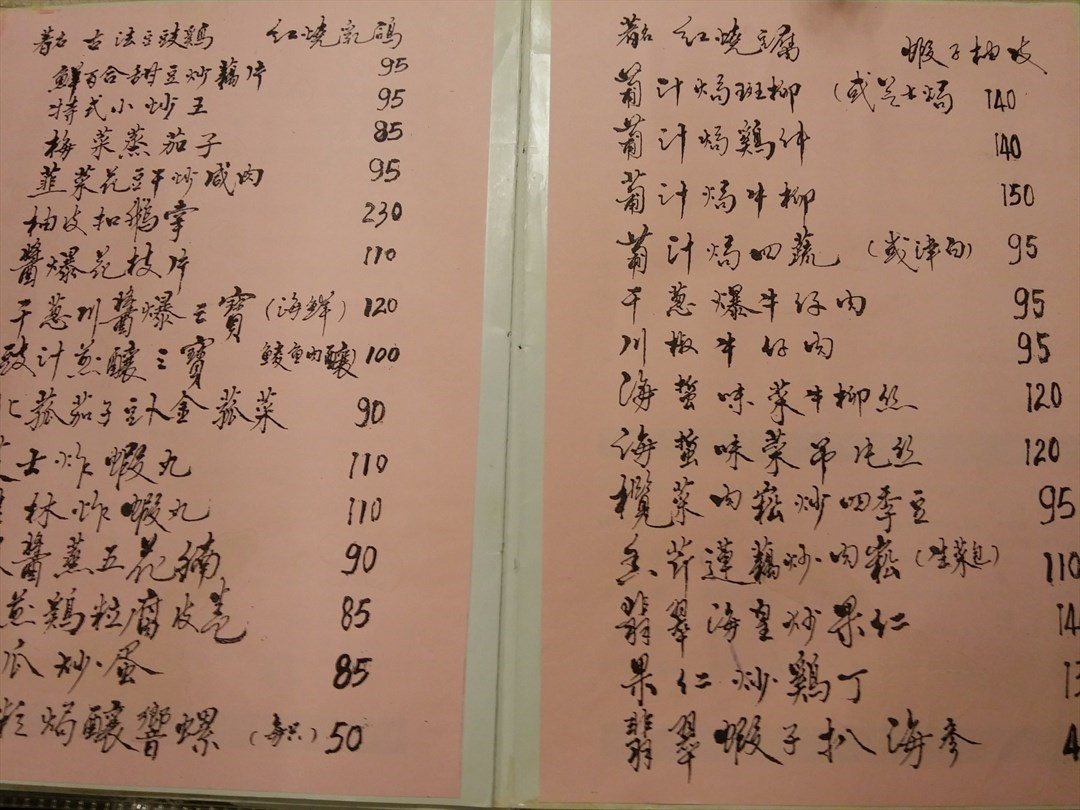 著名 古法豆豉鷄 紅燒乳鴿
鮮百合甜豆炒藕片 95
特式小炒王 95
梅菜蒸茄子 85
韮菜花豆干炒咸肉 95
柚皮扣鵝掌 230
醬爆花枝片 110
干葱川醬爆三寶(海鮮) 120
豉汁煎釀三寶 鯪魚肉釀) 100
菰茄子豆卜金菰菜 90
士炸蝦丸 110
林炸蝦丸 110
醬蒸五花腩 90
煎鷄粒腐皮卷 85
瓜炒蛋 85
焗釀響螺(每只) 50
著名 紅燒豆腐 蝦子柚皮
葡汁焗斑柳 (或芝士焗 140
葡汁焗鷄件 140
葡汁焗牛柳 150
葡汁焗四蔬 (或津白) 95
干葱爆牛仔肉 95
川椒牛仔肉 95
海蜇味菜牛柳絲 120
海蜇味菜吊片絲 120
欖菜肉崧炒四季豆 95
香芹蓮藕炒肉崧(生菜包) 110
翡翠海皇炒果仁
果仁炒鷄丁
翡翠蝦子扒海參